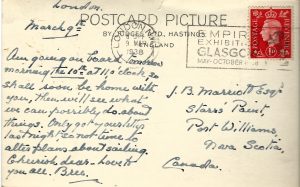 London.
March 9th
POSTCARD PICTURE
BY JUDGES LTD, HASTINGS
ENGLAND
LONDON
9 MCH
1938
EMPIRE
EXHIBITION
GLASGOW
MAY-OCTOBER
Am going on board tomorrow
morning the 10th at 11 o'clock, so
shall soon be home with
you, then we'll see what
we can possibly do about
things. Only got your letter
last night so not time to
alter plans about sailing.
Cheerioh, dear - love to
you all,
J.B. Marriott Esqr
Starrs' Point,
Port Williams,
Nova Scotia,
Canada.